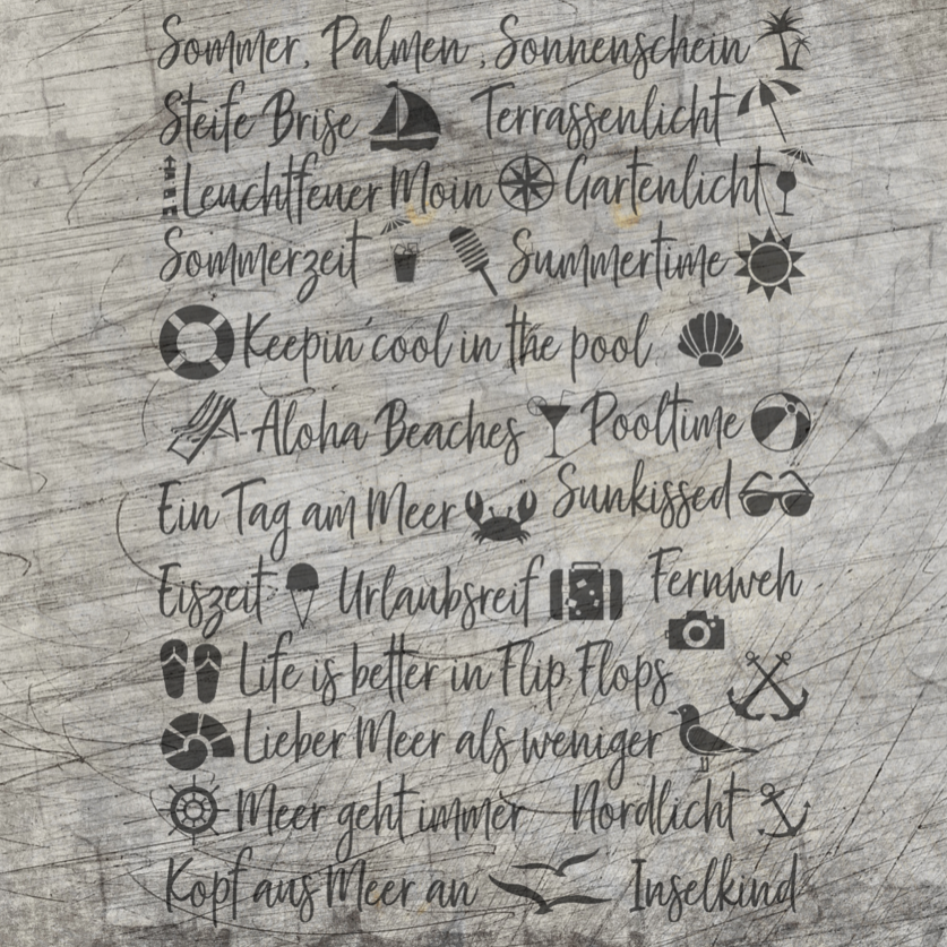 Sommer, Palmen, Sonnenschein
Steife Brise Terrassenlicht
Leuchtfeuer Moin Gartenlicht
Sommerzeit Summertime
Keepin' cool in the pool
Aloha Beaches Pooltime
Ein Tag am Meer Sunkissed
Eiszeit Urlaubsreif Fernweh
Life is better in Flip Flops
Lieber Meer als weniger
Meer geht immer Nordlicht
Kopf aus Meer an Inselkind